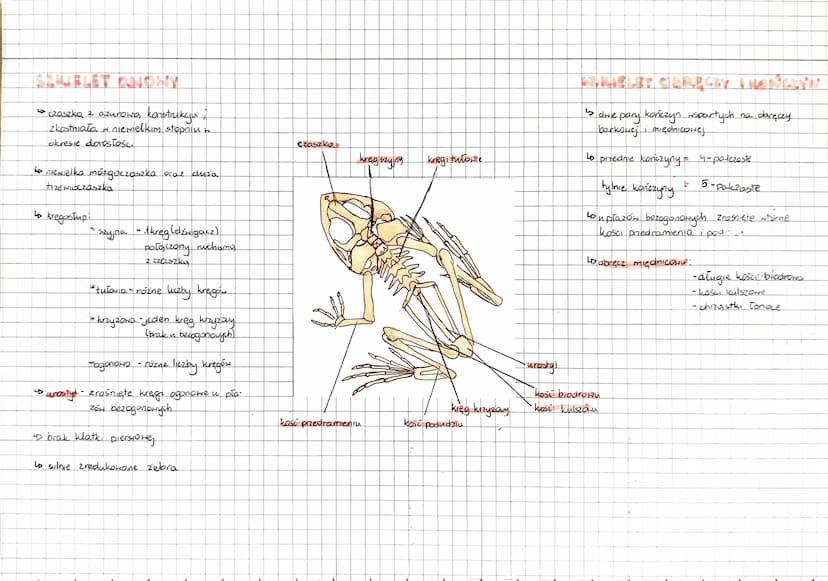 SZKIELET OSIOWY
↳ czaszka z ażurową konstrukcją ;
zkostniała w niewielkim stopniu w
okresie dorosłości
↳ niewielka mózgoczaszka oraz duża
trzewioczaszka
↳ kręgosłup:
• szyjna - 1 kręg (dźwigacz)
połączony ruchomą
z czaszką
• tułowia - różne liczby kręgów
• krzyżowa - jeden kręg krzyżowy
(brak u bezogonowych)
• ogonowa - różne liczby kręgów
↳ urostyl - zrośnięte kręgi ogonowe u pła-
zów bezogonowych
↳ brak klatki piersiowej
↳ silnie zredukowane żebra
czaszka
kręg szyjny
kręgi tułowie
urostyl
kość biodrowa
kość kulszowa
kręg krzyżowy
kość podudzia
kość przedramienia
SZKIELET OBRĘCZY I KOŃCZYN
↳ dwie pary kończyn wspartych na obręczy
barkowej i miednicowej
↳ przednie kończyny = 4-palczaste
tylnie kończyny = 5-palczaste
↳ u płazów bezogonowych zrośnięte wtórne
kości przedramienia i pod
↳ obręcz miednicowa:
- długie kości biodrowe
- kości kulszowe
- chrząstki łonowe